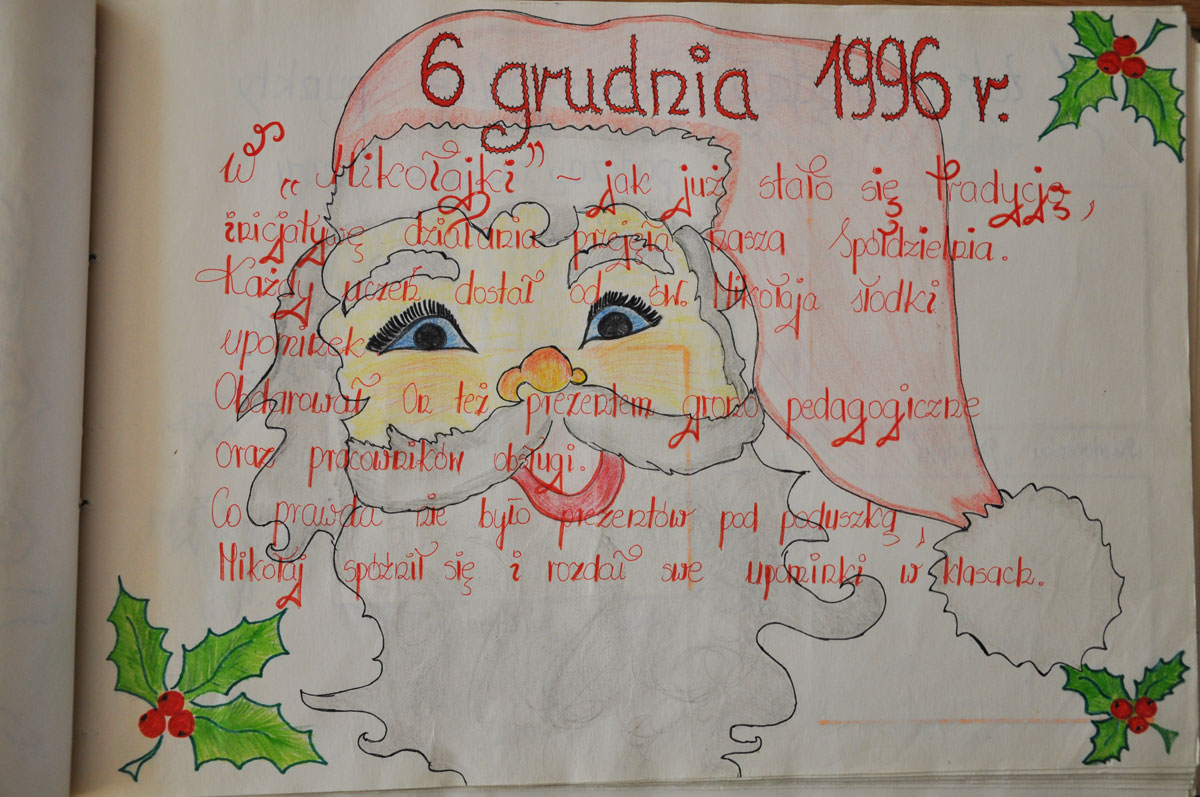 6 grudnia 1996 r.
W „Mikołajki” ~ jak już stało się tradycją,
inicjatywę działania przejęła nasza Spółdzielnia.
Każdy uczeń dostał od św. Mikołaja słodki
upominek.
Obdarował On też prezentem grono pedagogiczne
oraz pracowników obsługi.
Co prawda nie było prezentów pod poduszką,
Mikołaj spóźnił się i rozdał swe upominki w klasach.